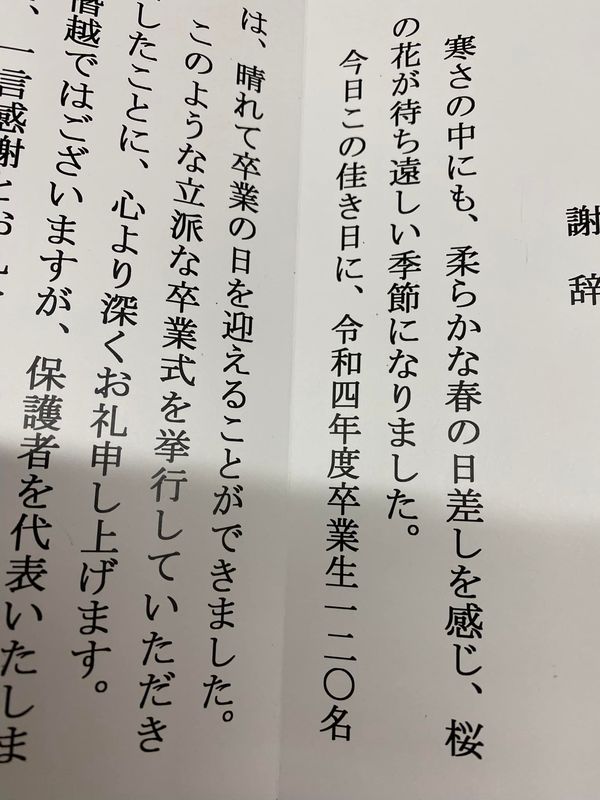 謝辞
寒さの中にも、柔らかな春の日差しを感じ、桜
の花が待ち遠しい季節になりました。
今日この佳き日に、令和四年度卒業生一二〇名
は、晴れて卒業の日を迎えることができました。
このような立派な卒業式を挙行していただき
したことに、心より深くお礼申し上げます。
僭越ではございますが、保護者を代表いたしま
一言感謝とお礼